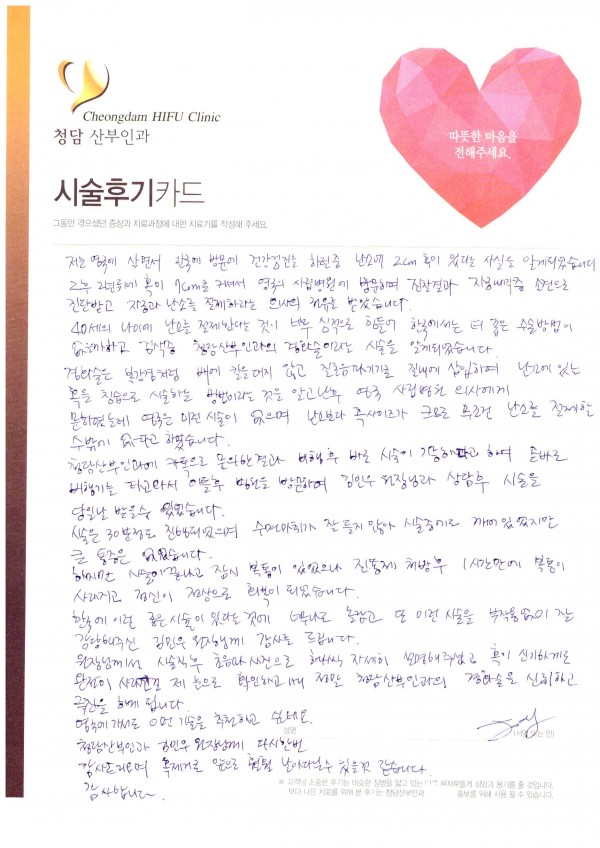 Cheongdam HIFU Clinic
청담 산부인과
따뜻한 마음을
전해주세요.
시술후기카드
그동안 겪으셨던 증상과 치료과정에 대한 치료기를 작성해 주세요.
저는 영국에 살면서 한국에 방문에 건강검진을 하던중 난소에 2cm 혹이 있다는 사실을 알게되었습니다
2년뒤에 혹이 7cm로 커져서 영국의 사립병원에 방문하여 진찰결과 자궁내막증 소견으로
진단받고 자궁과 난소를 절제하라는 의사의 권유를 받았습니다.
40세의 나이에 난소를 절제한다는 것이 너무 심적으로 힘들어 한국에서는 더 좋은 수술방법이
없을까하고 검색중 청담산부인과의 경화술이라는 시술을 알게되었습니다.
경화술은 복강경처럼 배에 칼을대지 않고 질초음파기기로 질내에 삽입하여 난소에 있는
혹을 침습으로 시술하는 방법이라는 것을 알고난후 영국 사립병원 의사에게
문의했는데 영국은 이런 시술이 없으며 난소보다 혹사이즈가 크므로 무조건 난소를 절제할
수밖에 없다고 하였습니다.
청담산부인과에 카톡으로 문의한결과 비행후 바로 시술이 가능하다고 하여 곧바로
비행기를 타고와서 이틀후 병원을 방문하여 김민우 원장님과 상담후 시술을
당일날 받을수 있었습니다.
시술은 30분정도 진행되었으며 수면마취가 잘 들지 않아 시술중에도 깨어 있었지만
큰 통증은 없었습니다.
하지만 시술이 끝나고 잠시 복통이 있었으나 진통제 처방후 1시간만에 복통이
사라지고 정신이 정상으로 회복이 되었습니다.
한국에 이런 좋은시술이 있다는것에 너무나 놀랍고 또 이런 시술을 부작용없이 잘
감당해주신 김민우 원장님께 감사를 드립니다.
원장님께서 시술직후 초음파 사진으로 하나씩 자세히 설명해주셨고 혹이 신기하게도
완전히 사라진걸 제 눈으로 확인하고나니 정말 청담산부인과의 경화술을 신뢰하고
극찬을 하게 됩니다.
영국에 가서도 이런 기술을 추천하고 싶네요.
성명
(서명 또는 인)
청담산부인과 김민우 원장님께 다시한번
감사드리며 혹제거로 앞으로 훨훨 날아다닐수 있을것 같습니다.
감사합니다.
※ 고객님 소중한 후기는 비슷한 질병을 앓고 있는 다른 환자분들께 희망과 용기를 줄 것입니다.
보다 나은 치료를 위해 본 후기는 청담산부인과 홍보를 위해 사용 될 수 있습니다.